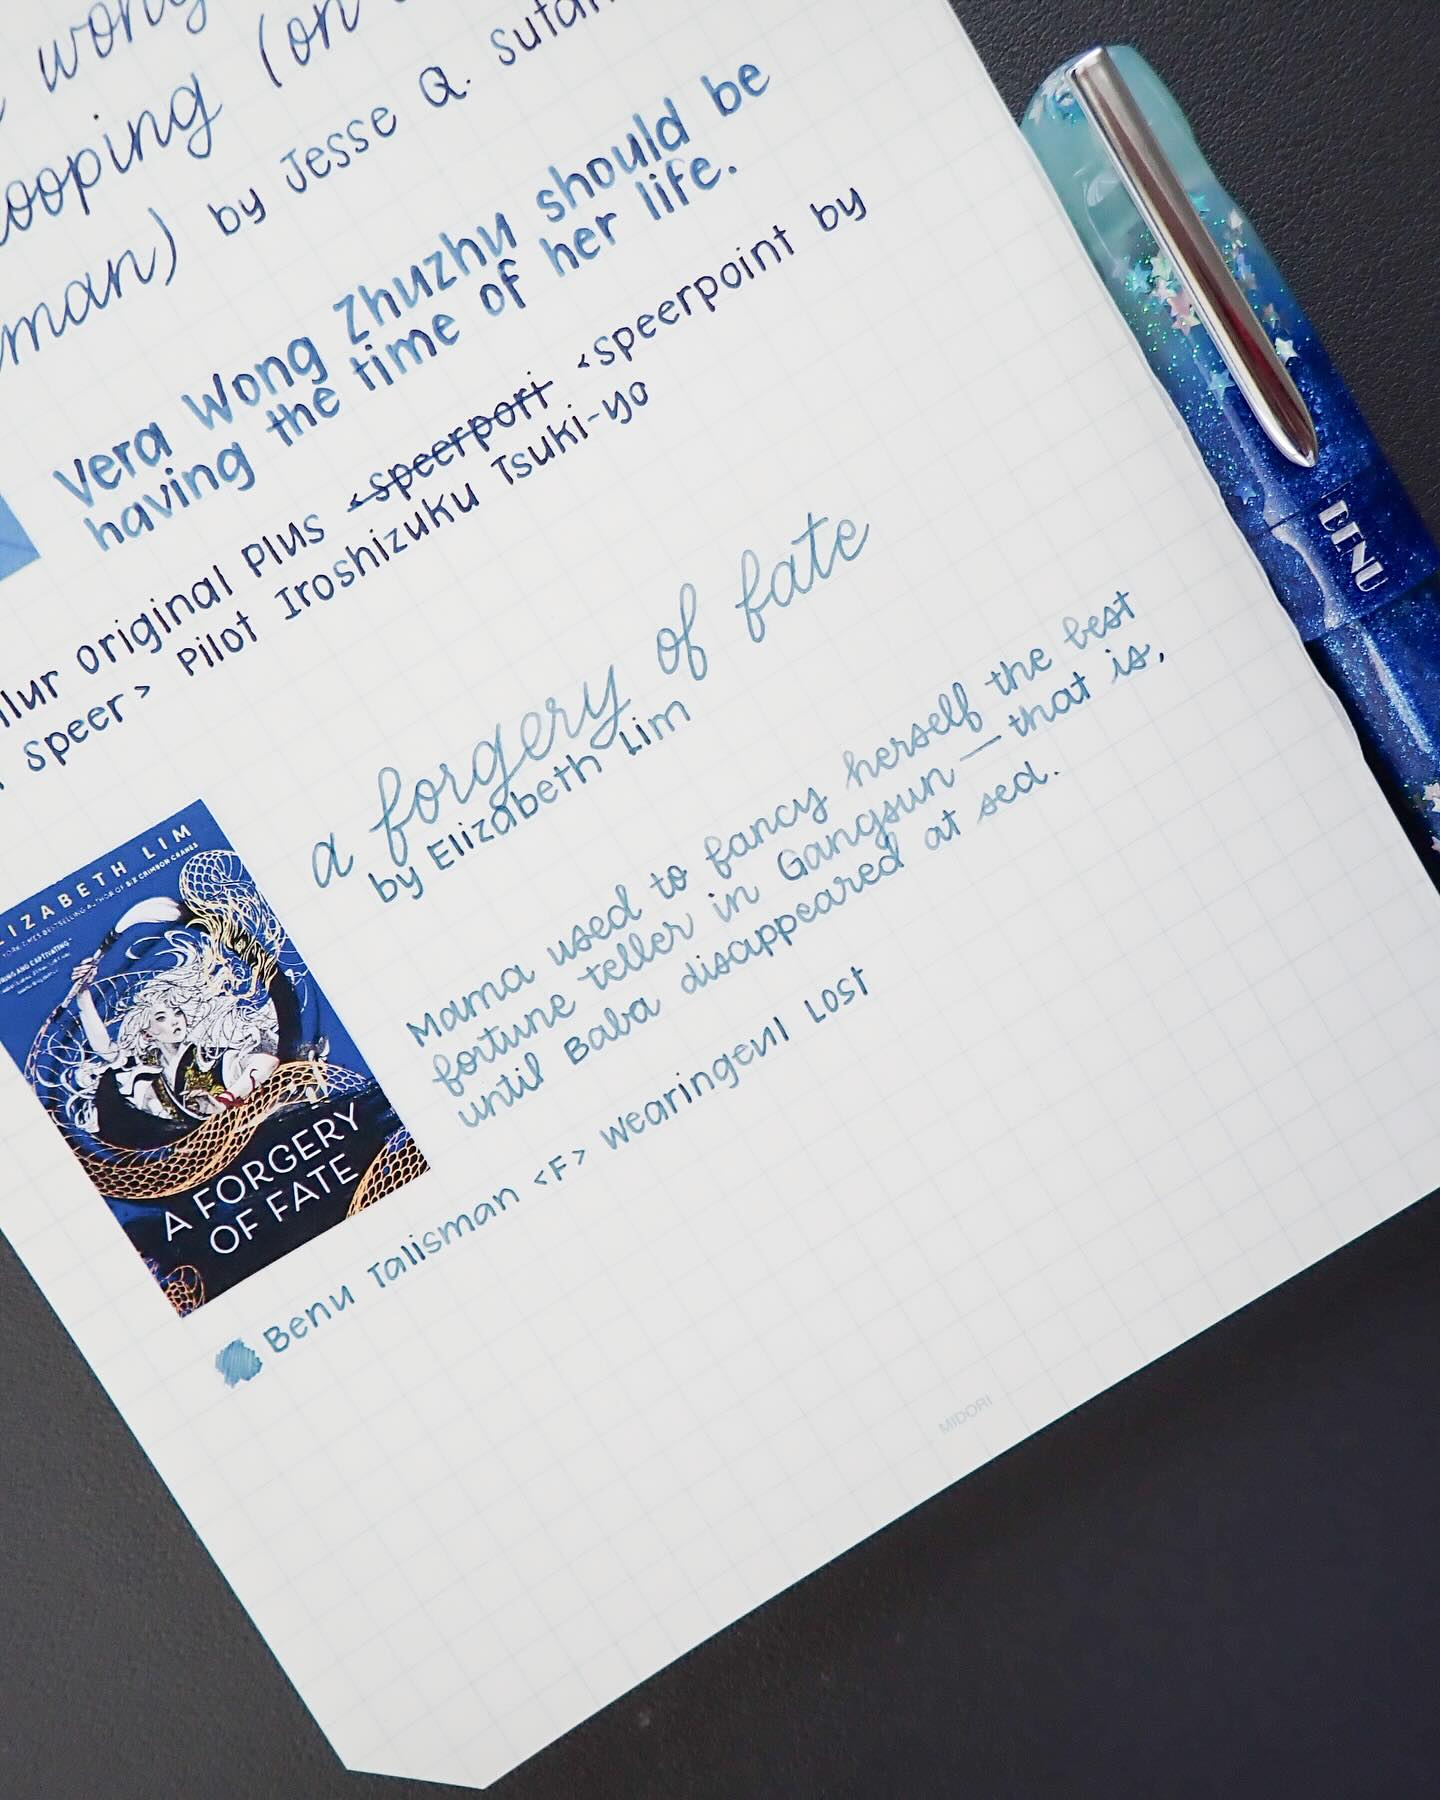 wong
ooping (on
man) by Jesse Q. Sutan
Vera Wong Zhuzhu should be
having the time of her life.
original Plus <speerport <speerpoint by
speer> Pilot Iroshizuku Tsuki-yo
a forgery of fate
by Elizabeth Lim
Mama used to fancy herself the best
fortune teller in Gangsun—that is,
until Baba disappeared at sea.
Benu Talisman <F> Wearingeul Lost
ELIZABETH LIM
NEW YORK TIMES BESTSELLING AUTHOR OF SIX CRIMSON CRANES
AND CAPTIVATING"
A FORGERY
OF FATE
BENU
MIDORI